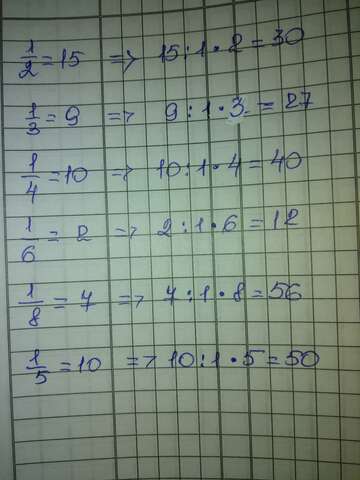 1/2 = 15 => 15 : 1 • 2 = 30
1/3 = 9 => 9 : 1 • 3 = 27
1/4 = 10 => 10 : 1 • 4 = 40
1/6 = 2 => 2 : 1 • 6 = 12
1/8 = 7 => 7 : 1 • 8 = 56
1/5 = 10 => 10 : 1 • 5 = 50